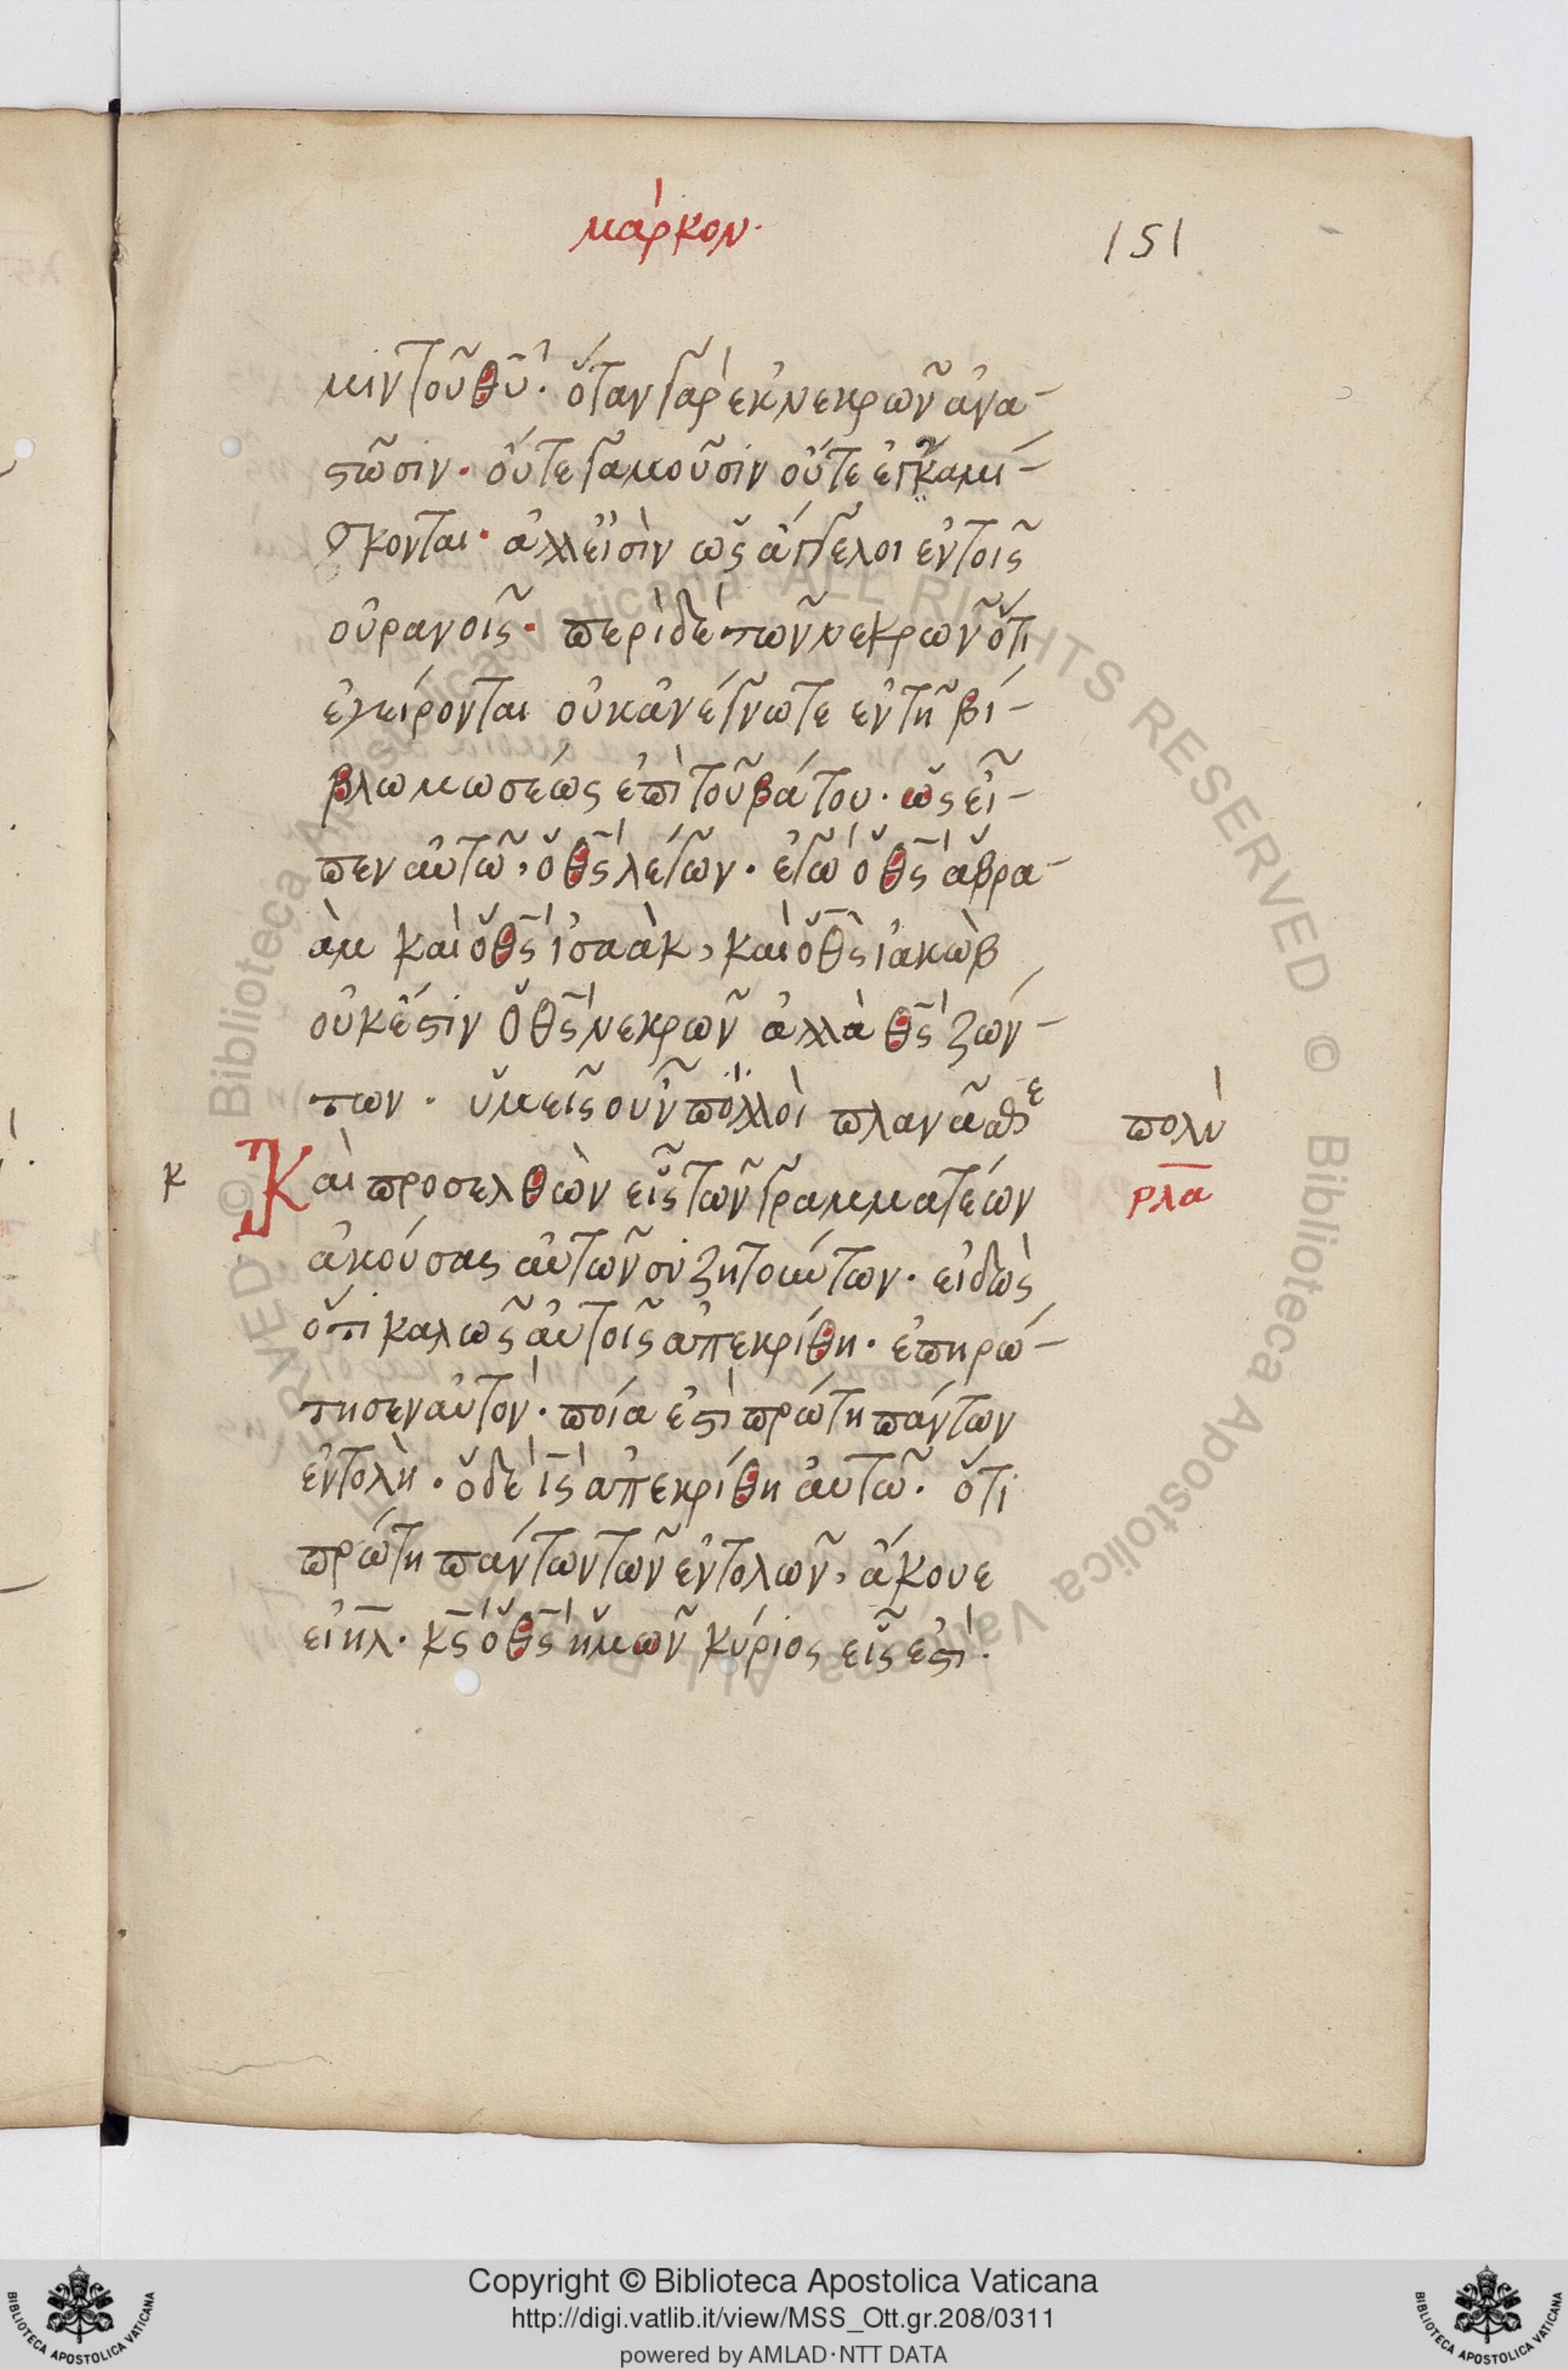 μάρκον.
151
μιν τοῦ θ̅υ̅. ὅταν γὰρ ἐκ νεκρῶν ἀνα-
στῶσιν. οὔτε γαμοῦσιν οὔτε ἐγκαμί-
σκονται. ἀλλ εἰσὶν ὡς ἄγγελοι ἐν τοῖς
οὐρανοῖς. περὶ δὲ τῶν νεκρῶν ὅτι
ἐγείρονται οὐκ ἀνέγνωτε ἐν τῆ βί-
βλω μωσέως ἐπὶ τοῦ βάτου. ὡς εἶ-
πεν αὐτῶ, ὁ θ̅ς̅ λέγων. ἐγὼ ὁ θ̅ς̅ ἁβρα-
ὰμ καὶ ὁ θ̅ς̅ ἰσαὰκ, καὶ ὁ θ̅ς̅ ἰακὼβ
οὐκ ἔστιν ὁ θ̅ς̅ νεκρῶν ἀλλὰ θ̅ς̅ ζών-
των. ὑμεῖς οὖν πολλοὶ πλανᾶσθε
πολὺ
κ
Καὶ προσελθὼν εἷς τῶν γραμματέων
ρλα
ἀκούσας αὐτῶν συζητούντων. εἰδὼς
ὅτι καλῶς αὐτοῖς ἀπεκρίθη. ἐπηρώ-
τησεν αὐτὸν. ποία ἐστὶ πρώτη πάντων
ἐντολὴ. ὁ δὲ ι̅ς̅ ἀπεκρίθη αὐτῶ. ὅτι
πρώτη πάντων τῶν ἐντολῶν, ἄκουε
ει̅η̅λ̅. κ̅ς̅ ὁ θ̅ς̅ ἡμῶν κύριος εἷς ἐστὶ.
Copyright © Biblioteca Apostolica Vaticana
http://digi.vatlib.it/view/MSS_Ott.gr.208/0311
powered by AMLAD·NTT DATA